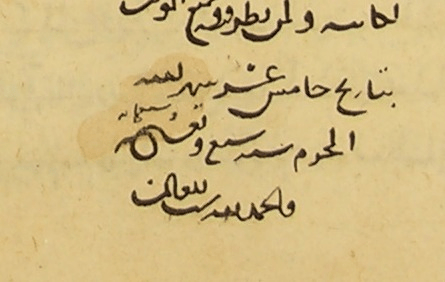 لكاتبه ولمن نظر فيه
بتاريخ خامس عشر شهر الله
المحرم سنة سبع و
والحمد لله رب العالمين